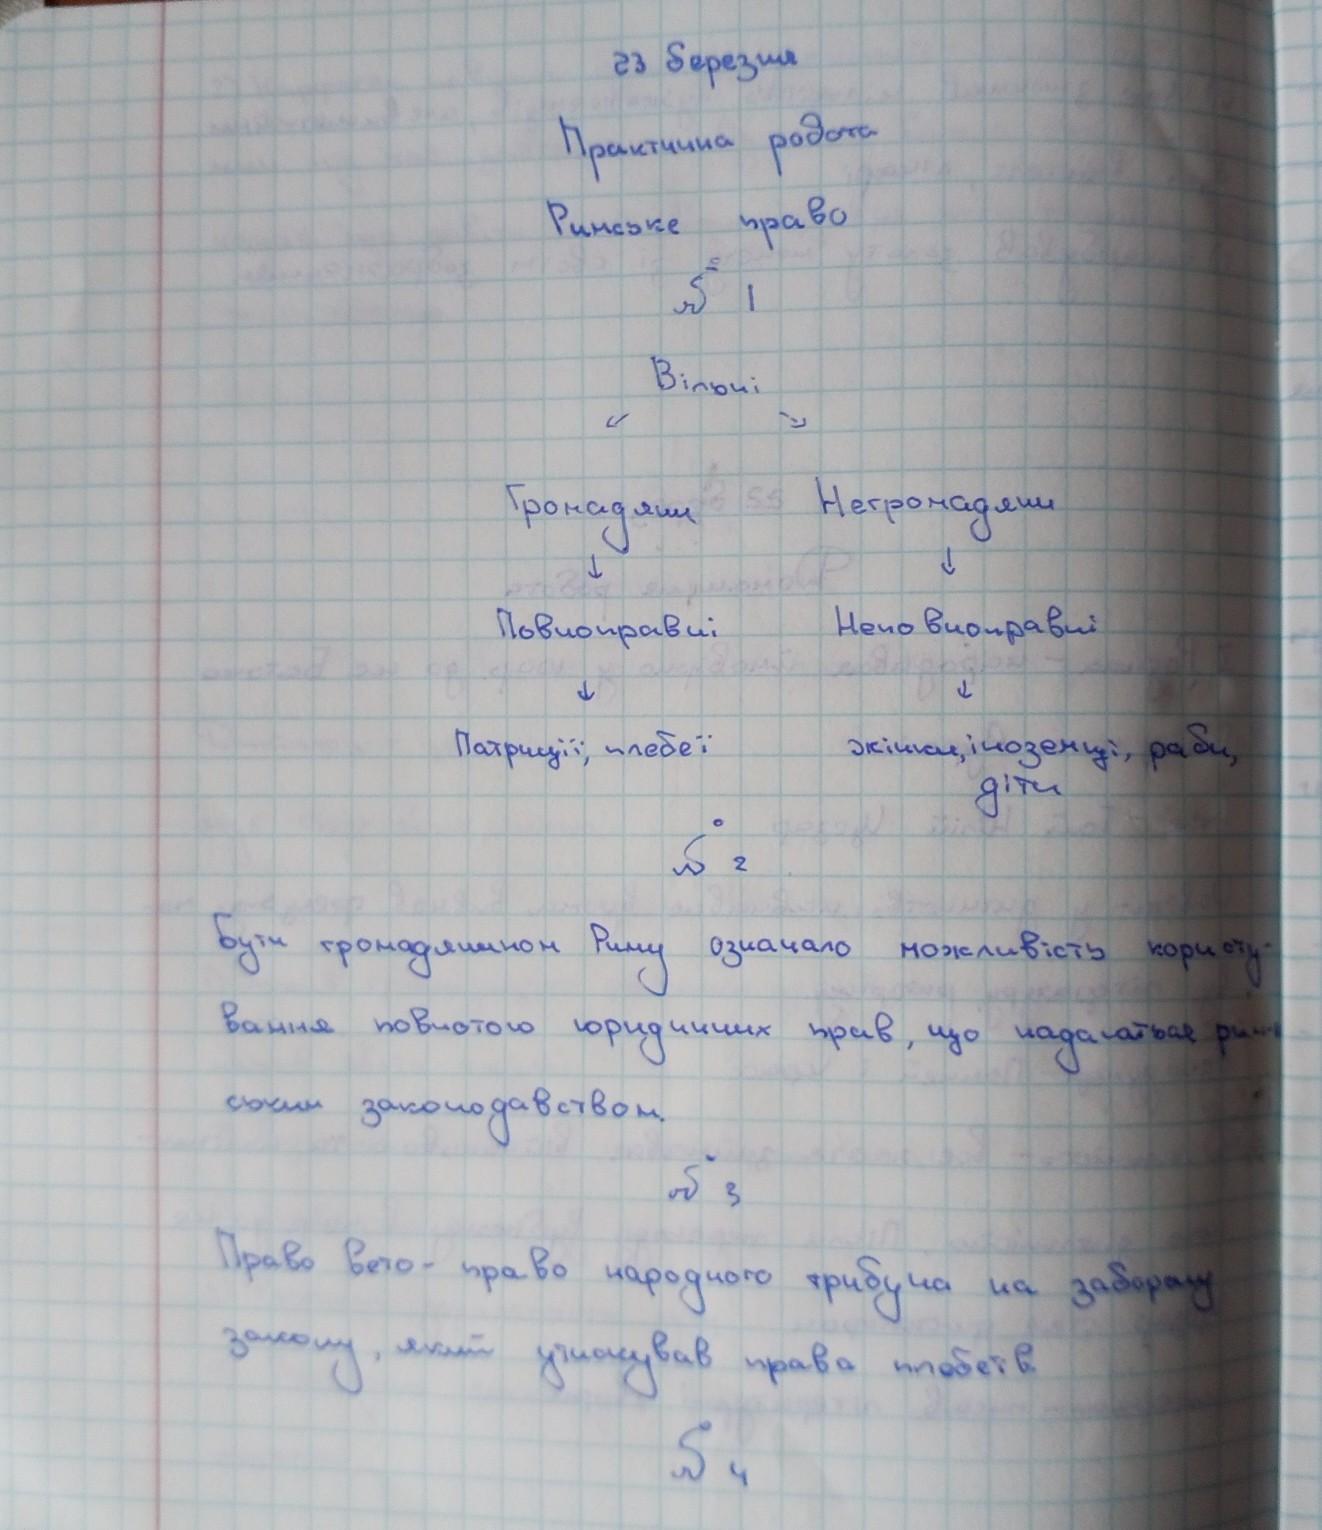 23 березня
Практична робота
Римське право
№ 1
Вільні
Громадяни Негромадяни
↓ ↓
Повноправні Неповноправні
↓ ↓
Патриції, плебеї жінки, іноземці, раби,
діти
№ 2
Бути громадянином Риму означало можливість користу-
вання повнотою юридичних прав, що надавалися рим-
ським законодавством.
№ 3
Право вето - право народного трибуна на заборону
закону, який утискував права плебеїв
№ 4